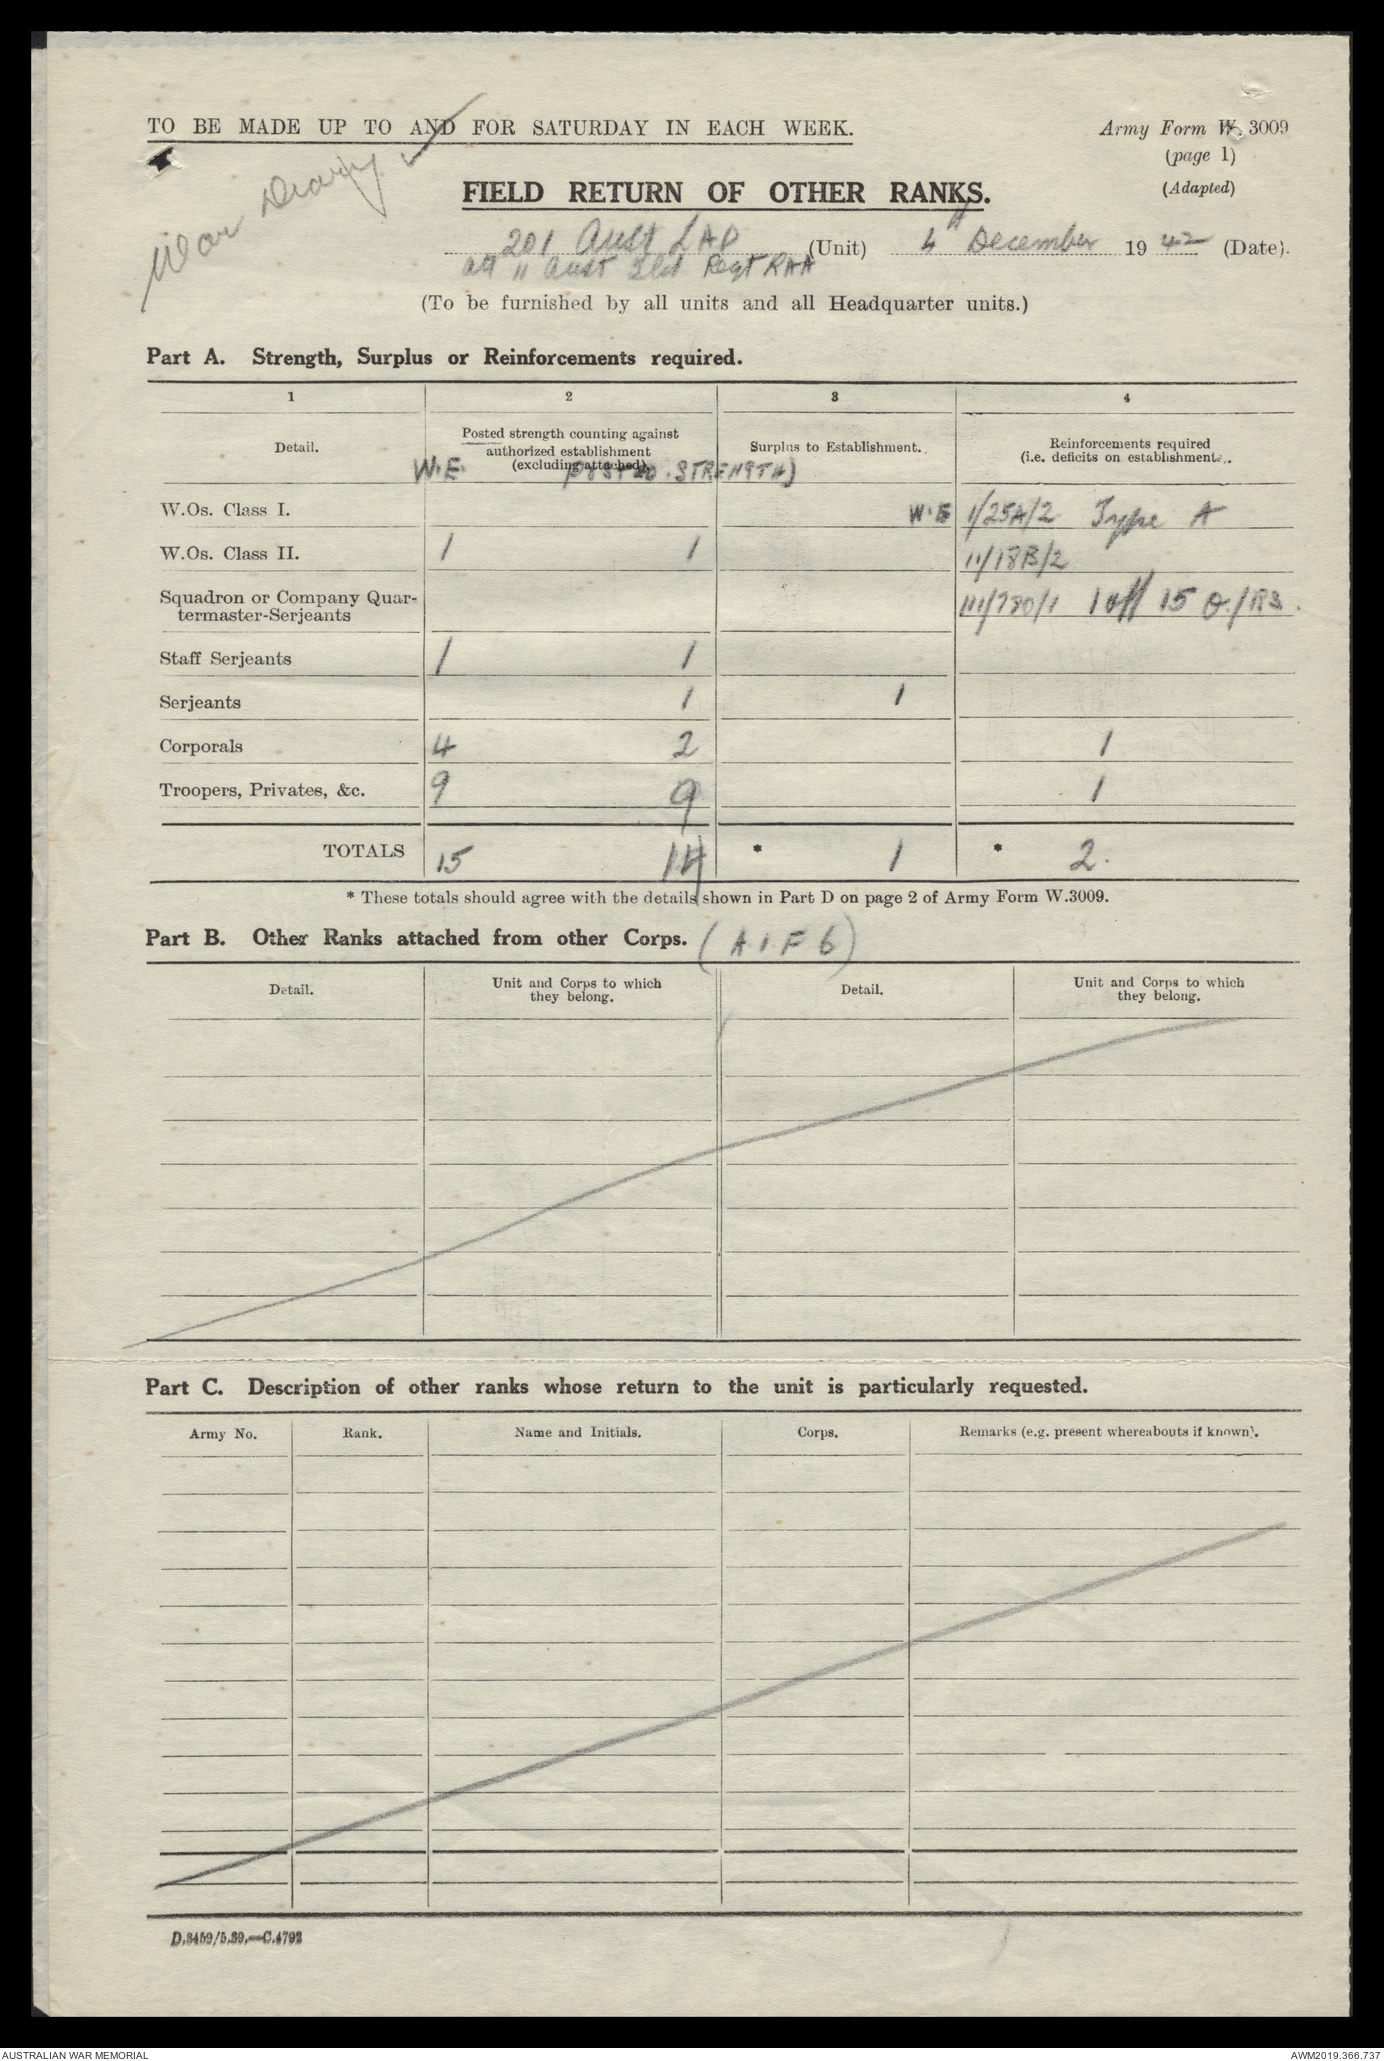 TO BE MADE UP TO AND FOR SATURDAY IN EACH WEEK.
Army Form W. 3009
(page 1)
(Adapted)
War Diary
FIELD RETURN OF OTHER RANKS.
201 Aust LAD (Unit) 4 December 1942 (Date).
att 11 Aust Fld Regt RAA
(To be furnished by all units and all Headquarter units.)
Part A. Strength, Surplus or Reinforcements required.
1 2 3 4
Detail. Posted strength counting against authorized establishment (excluding attached). Surplus to Establishment. Reinforcements required (i.e. deficits on establishment).
W.E. POSTED STRENGTH)
W.Os. Class I. W.E 1/25A/2 Type A
W.Os. Class II. 1 1 11/18B/2
Squadron or Company Quar-
termaster-Serjeants 111/780/1 1 off 15 O/RS.
Staff Serjeants 1 1
Serjeants 1 1
Corporals 4 2 1
Troopers, Privates, &c. 9 9 1
TOTALS 15 14 * 1 * 2.
* These totals should agree with the details shown in Part D on page 2 of Army Form W.3009.
Part B. Other Ranks attached from other Corps. (A.I.F 6)
Detail. Unit and Corps to which they belong. Detail. Unit and Corps to which they belong.
Part C. Description of other ranks whose return to the unit is particularly requested.
Army No. Rank. Name and Initials. Corps. Remarks (e.g. present whereabouts if known).
D.3459/5.39.—C.4792
AUSTRALIAN WAR MEMORIAL
AWM2019.366.737